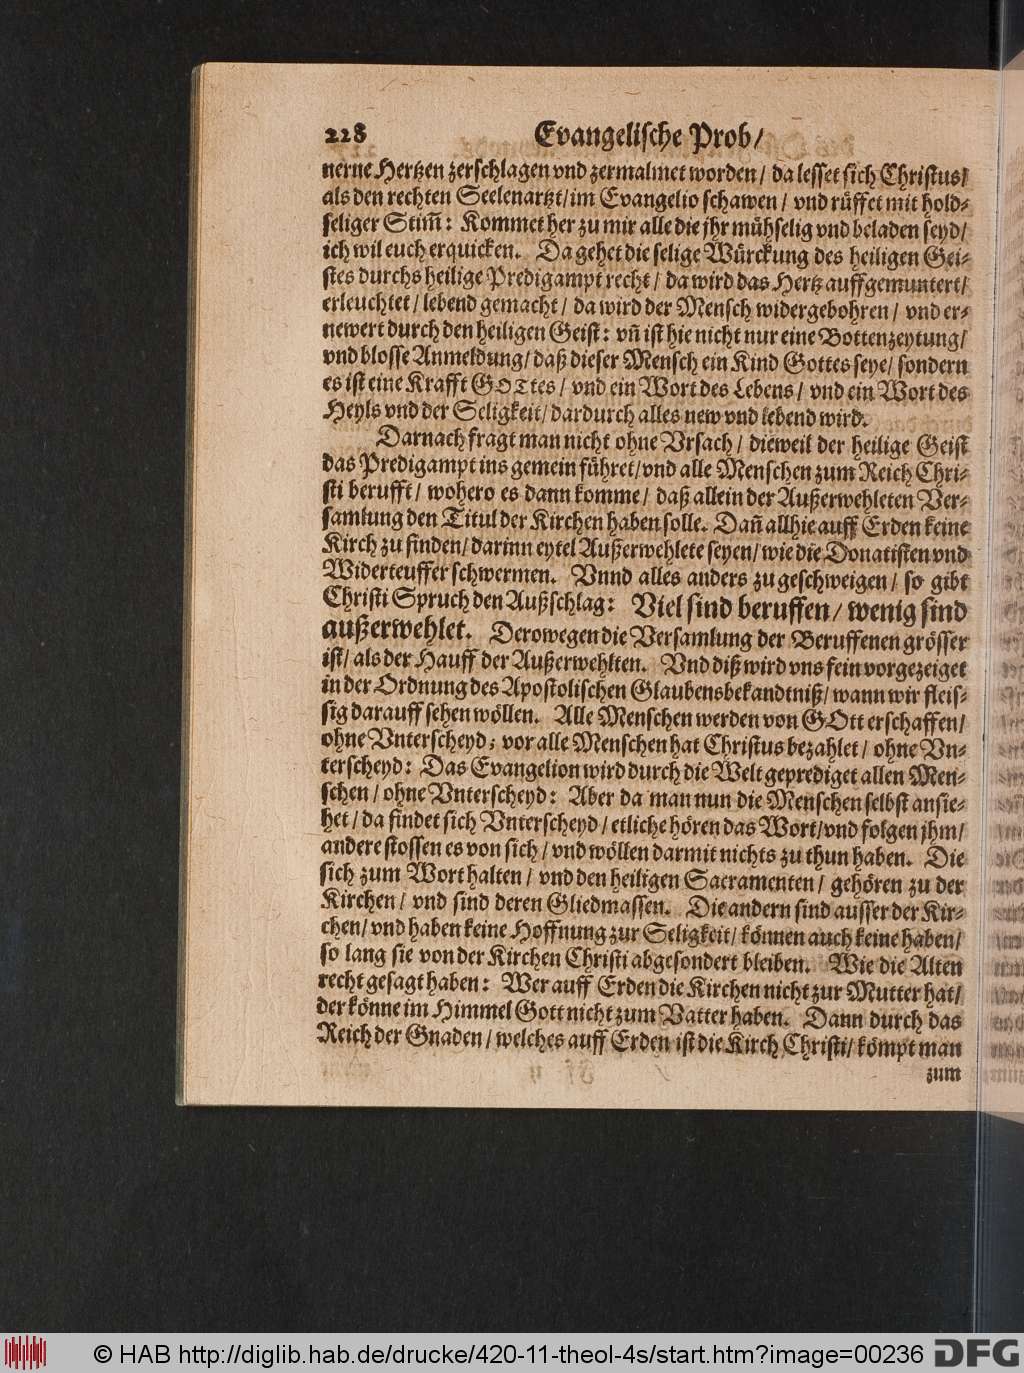 228 Evangelische Prob/
nerne Hertzen zerschlagen vnd zermalmet worden/ da lesset sich Christus/
als den rechten Seelenartzt/ im Evangelio schawen/ vnd rüffet mit hold-
seliger Stim̃: Kommet her zu mir alle die jhr mühselig vnd beladen seyd/
ich wil euch erquicken. Da gehet die selige Würckung des heiligen Gei-
stes durchs heilige Predigampt recht/ da wird das Hertz auffgemuntert/
erleuchtet/ lebend gemacht/ da wird der Mensch widergebohren/ vnd er-
newert durch den heiligen Geist: vñ ist hie nicht nur eine Bottenzeytung/
vnd blosse Anmeldung/ daß dieser Mensch ein Kind Gottes seye/ sondern
es ist eine Krafft GOTtes/ vnd ein Wort des Lebens/ vnd ein Wort des
Heyls vnd der Seligkeit/ dardurch alles new vnd lebend wird.
Darnach fragt man nicht ohne Vrsach/ dieweil der heilige Geist
das Predigampt ins gemein führet/ vnd alle Menschen zum Reich Chri-
sti berufft/ wohero es dann komme/ daß allein der Außerwehleten Ver-
samlung den Titul der Kirchen haben solle. Dañ allhie auff Erden keine
Kirch zu finden/ darinn eytel Außerwehlete seyen/ wie die Donatisten vnd
Widerteuffer schwermen. Vnnd alles anders zu geschweigen/ so gibt
Christi Spruch den Außschlag: Viel sind beruffen/ wenig sind
außerwehlet. Derowegen die Versamlung der Beruffenen grösser
ist/ als der Hauff der Außerwehlten. Vnd diß wird vns fein vorgezeiget
in der Ordnung des Apostolischen Glaubensbekandtniß/ wann wir fleis-
sig darauff sehen wöllen. Alle Menschen werden von GOtt erschaffen/
ohne Vnterscheyd; vor alle Menschen hat Christus bezahlet/ ohne Vn-
terscheyd: Das Evangelion wird durch die Welt geprediget allen Men-
schen/ ohne Vnterscheyd: Aber da man nun die Menschen selbst ansie-
het/ da findet sich Vnterscheyd/ etliche hören das Wort/ vnd folgen jhm/
andere stossen es von sich/ vnd wöllen darmit nichts zu thun haben. Die
sich zum Wort halten/ vnd den heiligen Sacramenten/ gehören zu der
Kirchen/ vnd sind deren Gliedmassen. Die andern sind ausser der Kir-
chen/ vnd haben keine Hoffnung zur Seligkeit/ können auch keine haben/
so lang sie von der Kirchen Christi abgesondert bleiben. Wie die Alten
recht gesagt haben: Wer auff Erden die Kirchen nicht zur Mutter hat/
der könne im Himmel Gott nicht zum Vatter haben. Dann durch das
Reich der Gnaden/ welches auff Erden ist die Kirch Christi/ kömpt man
zum
© HAB http://diglib.hab.de/drucke/420-11-theol-4s/start.htm?image=00236 DFG